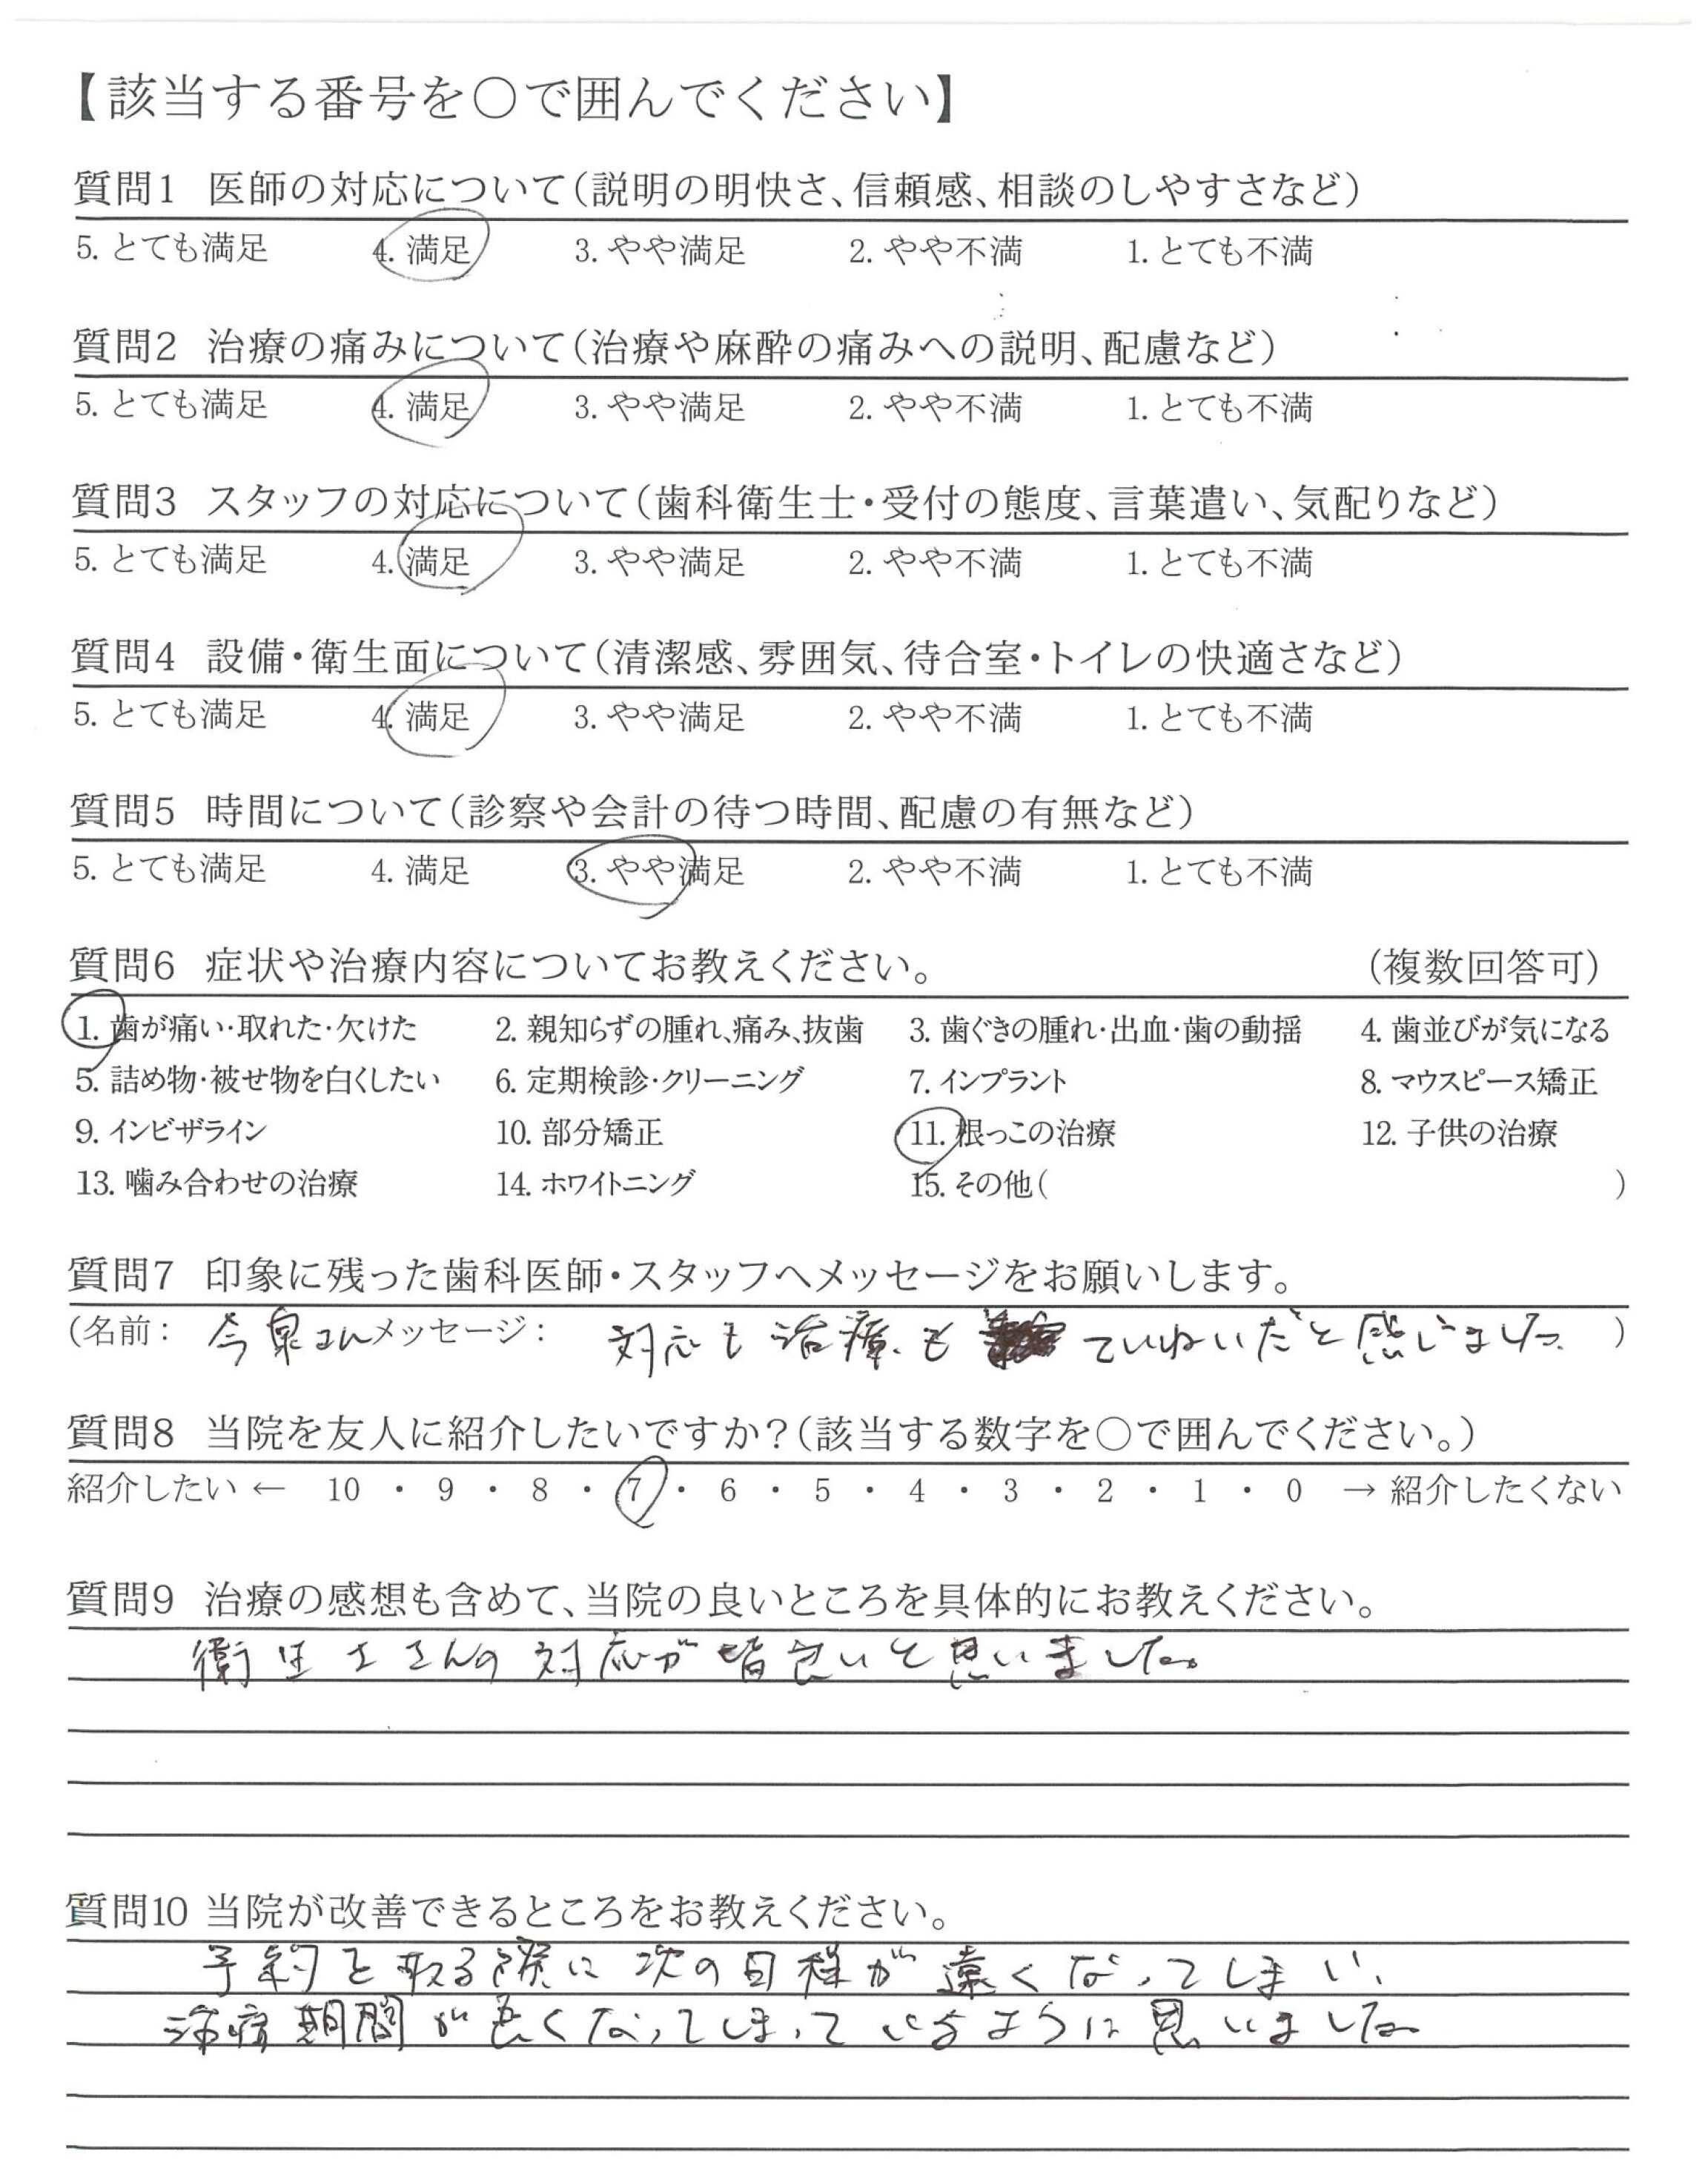 【該当する番号を○で囲んでください】
質問1 医師の対応について(説明の明快さ、信頼感、相談のしやすさなど)
5. とても満足 4. 満足 3. やや満足 2. やや不満 1. とても不満
質問2 治療の痛みについて(治療や麻酔の痛みへの説明、配慮など)
5. とても満足 4. 満足 3. やや満足 2. やや不満 1. とても不満
質問3 スタッフの対応について(歯科衛生士・受付の態度、言葉遣い、気配りなど)
5. とても満足 4. 満足 3. やや満足 2. やや不満 1. とても不満
質問4 設備・衛生面について(清潔感、雰囲気、待合室・トイレの快適さなど)
5. とても満足 4. 満足 3. やや満足 2. やや不満 1. とても不満
質問5 時間について(診察や会計の待つ時間、配慮の有無など)
5. とても満足 4. 満足 3. やや満足 2. やや不満 1. とても不満
質問6 症状や治療内容についてお教えください。 (複数回答可)
1. 歯が痛い・取れた・欠けた 2. 親知らずの腫れ、痛み、抜歯 3. 歯ぐきの腫れ・出血・歯の動揺 4. 歯並びが気になる
5. 詰め物・被せ物を白くしたい 6. 定期検診・クリーニング 7. インプラント 8. マウスピース矯正
9. インビザライン 10. 部分矯正 11. 根っこの治療 12. 子供の治療
13. 噛み合わせの治療 14. ホワイトニング 15. その他( )
質問7 印象に残った歯科医師・スタッフへメッセージをお願いします。
(名前: 今泉さん メッセージ: 対応も治療も ていねいだと感じました。 )
質問8 当院を友人に紹介したいですか?(該当する数字を○で囲んでください。)
紹介したい ← 10 ・ 9 ・ 8 ・ 7 ・ 6 ・ 5 ・ 4 ・ 3 ・ 2 ・ 1 ・ 0 → 紹介したくない
質問9 治療の感想も含めて、当院の良いところを具体的にお教えください。
衛生士さんの対応が皆良いと思いました。
質問10 当院が改善できるところをお教えください。
予約を取る際に次の日程が遠くなってしまい、
治療期間が長くなってしまっているように思いました。